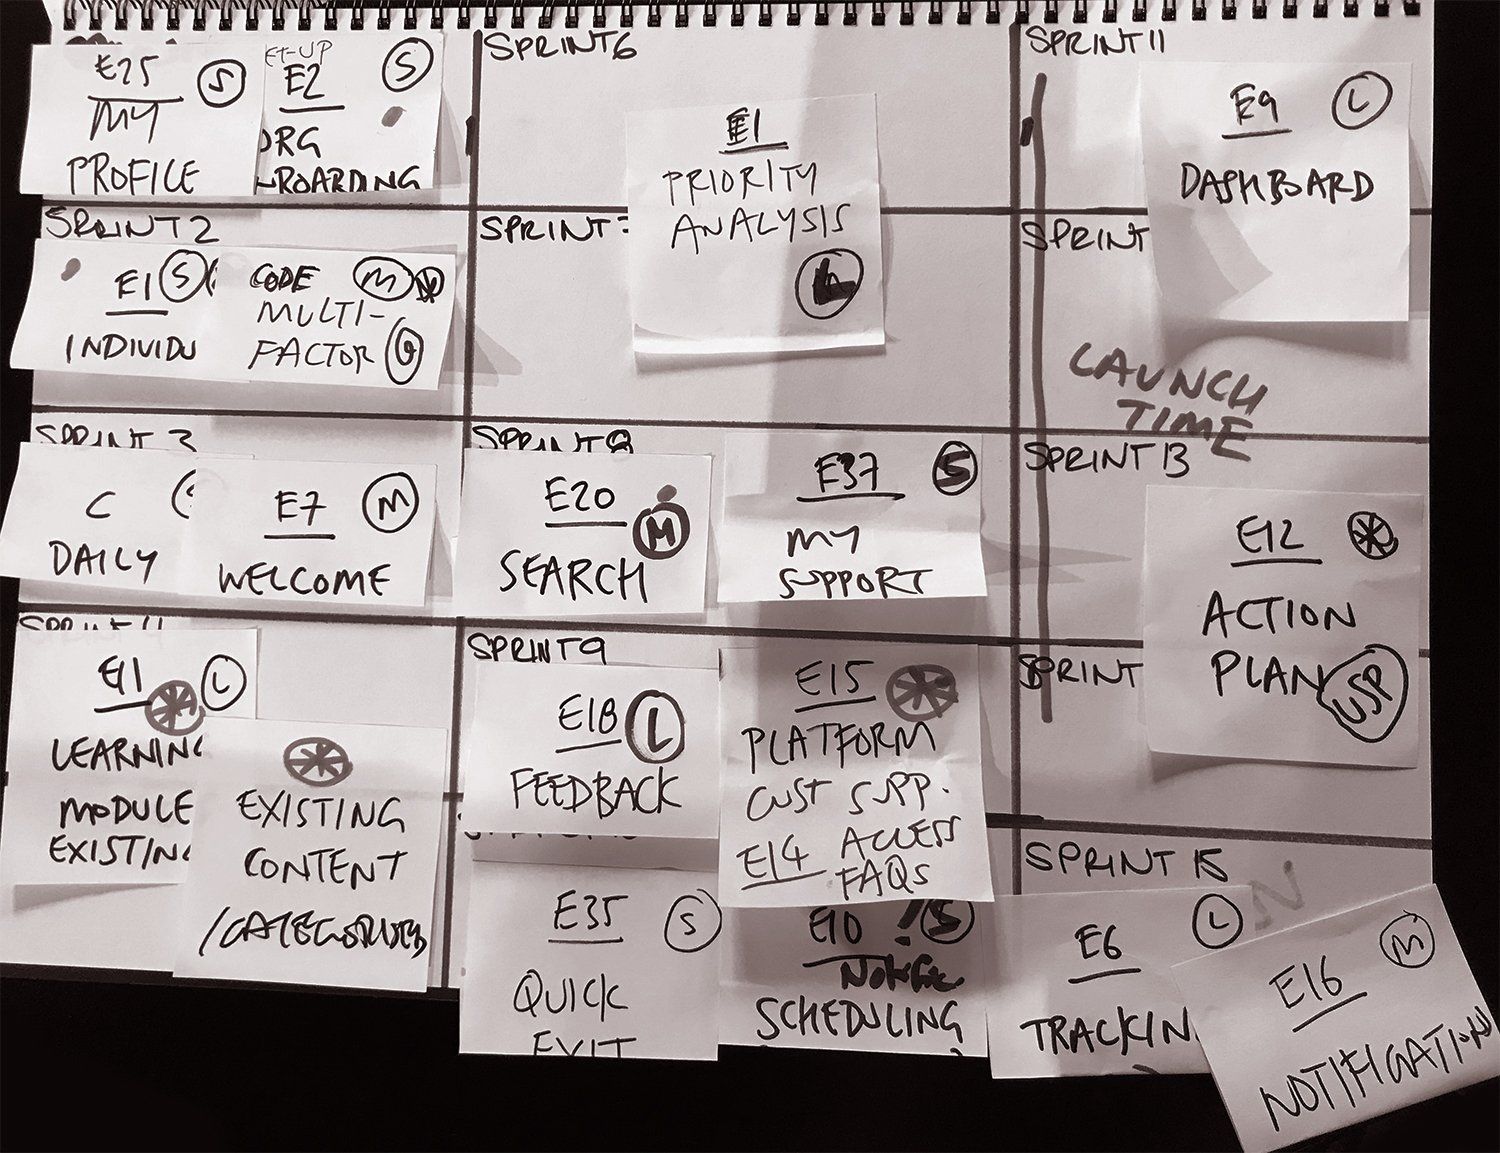 E25 S
MY
PROFILE
ET-UP
E2 S
ORG
NBOARDING
SPRINT 2
E1 S
INDIVIDU
CODE M
MULTI-
FACTOR
SPRINT 3
C
DAILY
E7 M
WELCOME
E11 L
LEARNING
MODULE
EXISTING
EXISTING
CONTENT
/CATEGORIES
SPRINT 6
E1
PRIORITY
ANALYSIS
L
SPRINT 7
SPRINT 8
E20
M
SEARCH
E37 S
MY
SUPPORT
SPRINT 9
E18 L
FEEDBACK
E15
PLATFORM
CUST SUPP.
E14 ACCESS
FAQS
E35 S
QUICK
EXIT
E10 ! S
NOTIFIC
SCHEDULING
SPRINT 11
E9 L
DASHBOARD
SPRINT
LAUNCH
TIME
SPRINT 13
E12
ACTION
PLAN USP
SPRINT
SPRINT 15
E6 L
TRACKIN
E16 M
NOTIFICATION